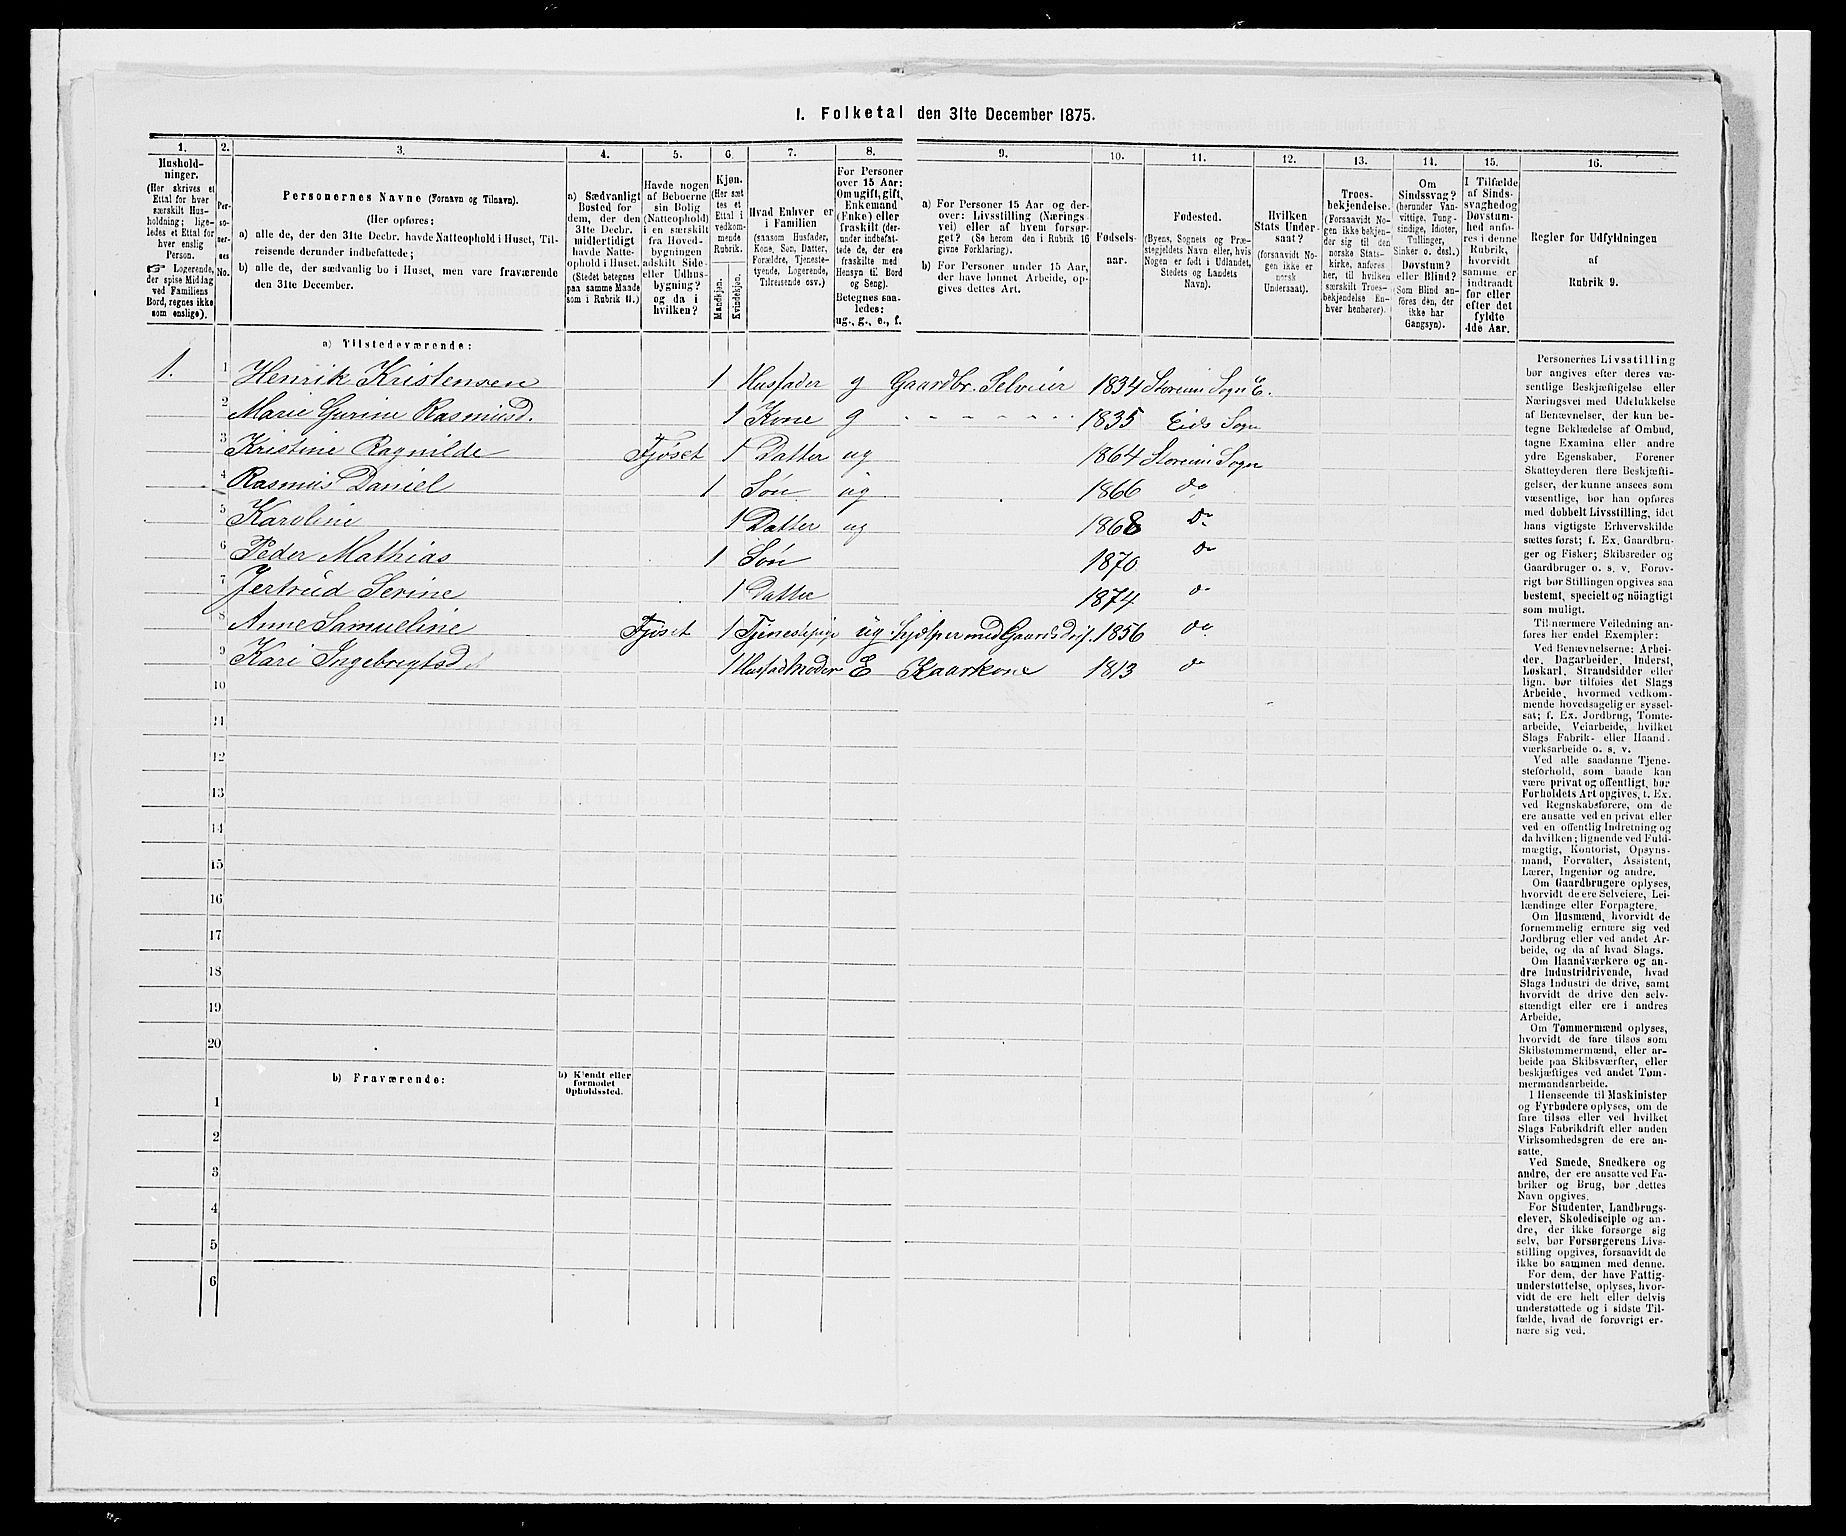 I. Folketal den 31te December 1875.
1. 2. 3. 4. 5. 6. 7. 8. 9. 10. 11. 12. 13. 14. 15. 16.
Hushold-
ninger.
(Her skrives et
Ettal for hver
særskilt Hus-
holdning; lige-
ledes et Ettal for
hver enslig
Person.
☞ Logerende,
der spise Middag
ved Familiens
Bord, regnes ikke
som enslige).
Per-
so-
ner-
nes
No.
Personernes Navne (Fornavn og Tilnavn).
(Her opføres:
a) alle de, der den 31te Decbr. havde Natteophold i Huset, Til-
reisende derunder indbefattede;
b) alle de, der sædvanlig bo i Huset, men vare fraværende
den 31te December.
a) Sædvanligt
Bosted for
dem, der den
31te Decbr.
midlertidigt
havde Natte-
ophold i Huset.
(Stedet betegnes
paa samme Maade
som i Rubrik 11.)
Havde nogen
af Beboerne
sin Bolig
(Natteophold)
i en særskilt
fra Hoved-
bygningen
adskilt Side-
eller Udhus-
bygning?
og da i
hvilken?
Kjøn.
(Her sæt
tes et
Ettal i
vedkom-
mende
Rubrik.
Mandkjøn.
Kvindekjøn.
Hvad Enhver er
i Familien
(saasom Husfader,
Kone, Søn, Datter,
Forældre, Tjeneste-
tyende, Logerende,
Tilreisende osv.)
For Personer
over 15 Aar:
Om ugift, gift,
Enkemand
(Enke) eller
fraskilt (der-
under indbefat-
tede de, der ere
fraskilte med
Hensyn til Bord
og Seng).
Betegnes saa-
ledes:
ug., g., e., f.
a) For Personer 15 Aar og der-
over: Livsstilling (Nærings-
vei) eller af hvem forsør-
get? (Se herom den i Rubrik 16
givne Forklaring).
b) For Personer under 15 Aar,
der have lønnet Arbeide, op-
gives dettes Art.
Fødsels-
aar.
Fødested.
(Byens, Sognets og Præ-
stegjeldets Navn eller, hvis
Nogen er født i Udlandet,
Stedets og Landets
Navn).
Hvilken
Stats Under-
saat?
(forsaavidt No-
gen ikke er
norsk
Undersaat).
Troes-
bekjendelse.
(Forsaavidt No-
gen ikke bekjen-
der sig til den
norske Stats-
kirke, anføres
her, til hvilken
særskilt Troes-
bekjendelse En-
hver henhører).
Om
Sindssvag?
(herunder Van-
vittige, Tung-
sindige, Idioter,
Tullinger,
Sinker o. desl.)
Døvstum?
eller Blind?
(Som Blind an-
føres den, der
ikke har
Gangsyn).
I Tilfælde
af Sinds-
svaghed og
Døvstum-
hed anfø-
res i denne
Rubrik,
hvorvidt
samme er
indtraadt
før eller
efter det
fyldte
4de Aar.
Regler for Udfyldningen
af
Rubrik 9.
a) Tilstedeværende:
1. 1 Henrik Kristensen 1 Husfader g Gaardbr. Selveier 1834 Storeim Sogn E.
2 Marie Gurine Rasmusd. 1 Kone g 1835 Eids Sogn
3 Kristine Ragnilde Fjøset 1 Datter ug 1864 Storeim Sogn
4 Rasmus Daniel 1 Søn ug 1866 do
5 Karoline 1 Datter ug 1868 Do
6 Peder Mathias 1 Søn 1870 do
7 Jertrud Serine 1 Datter 1874 do
8 Anne Samueline Fjøset 1 Tjenestepige ug hjelper med Gaardsdrif. 1856 do
9 Kari Ingebregtsd 1 Husfadmoder E Kaarkone 1813 do
10
11
12
13
14
15
16
17
18
19
20
b) Fraværende:
b) Kjendt eller
formodet
Opholdssted.
1
2
3
4
5
6
Personernes Livsstilling
bør angives efter deres væ-
sentlige Beskjæftigelse eller
Næringsvei med Udelukkelse
af Benævnelser, der kun be-
tegne Beklædelse af Ombud,
tagne Examina eller andre
ydre Egenskaber. Forener
Skatteyderen flere Beskjæfti-
gelser, der kunne ansees som
væsentlige, bør han opføres
med dobbelt Livsstilling, idet
hans vigtigste Erhvervskilde
sættes først; f. Ex. Gaardbru-
ger og Fisker; Skibsreder og
Gaardbruger o. s. v. Forøv-
rigt bør Stillingen opgives saa
bestemt, specielt og nøiagtigt
som muligt.
Til nærmere Veiledning an-
føres her endel Exempler:
Ved Benævnelserne: Arbei-
der, Dagarbeider, Inderst,
Løskarl, Strandsidder eller
lign. bør tilføies det Slags
Arbeide, hvormed vedkom-
mende hovedsagelig er syssel-
sat; f. Ex. Jordbrug, Tomte-
arbeide, Veiarbeide, hvilket
Slags Fabrik- eller Haand-
værksarbeide o. s. v.
Ved alle saadanne Tjene-
steforhold, som baade kan
være privat og offentligt, bør
Forholdets Art opgives, t. Ex.
ved Regnskabsførere, om de
ere ansatte ved en privat eller
ved en offentlig Indretning og
da hvilken; lignende ved Fuld-
mægtig, Kontorist, Opsyns-
mand, Forvalter, Assistent,
Lærer, Ingeniør og andre.
Om Gaardbrugere oplyses,
hvorvidt de ere Selveiere, Lei-
lændinge eller Forpagtere.
Om Husmænd, hvorvidt de
fornemmelig ernære sig ved
Jordbrug eller ved andet Ar-
beide, og da af hvad Slags.
Om Haandværkere og an-
dre Industridrivende, hvad
Slags Industri de drive, samt
hvorvidt de drive den selv-
stændigt eller ere i andres
Arbeide.
Om Tømmermænd oplyses,
hvorvidt de fare tilsøs som
Skibstømmermænd, eller ar-
beide paa Skibsværfter, eller
beskjæftiges ved andet Tøm-
mermandsarbeide.
I Henseende til Maskinister
og Fyrbødere oplyses, om de
fare tilsøs eller ved hvilket
Slags Fabrikdrift eller anden
Virksomhedsgren de ere an-
satte.
Ved Smede, Snedkere og
andre, der ere ansatte ved Fa-
briker og Brug, bør dettes
Navn opgives.
For Studenter, Landbrugs-
elever, Skoledisciple og an-
dre, der ikke forsørge sig
selv, bør Forsørgerens Livs-
stilling opgives, forsaavidt de
ikke bo sammen med denne.
For dem, der have Fattig-
understøttelse, oplyses, hvor-
vidt de ere helt eller delvis
understøttede og i sidste Til-
fælde, hvad de forøvrigt er-
nære sig ved.